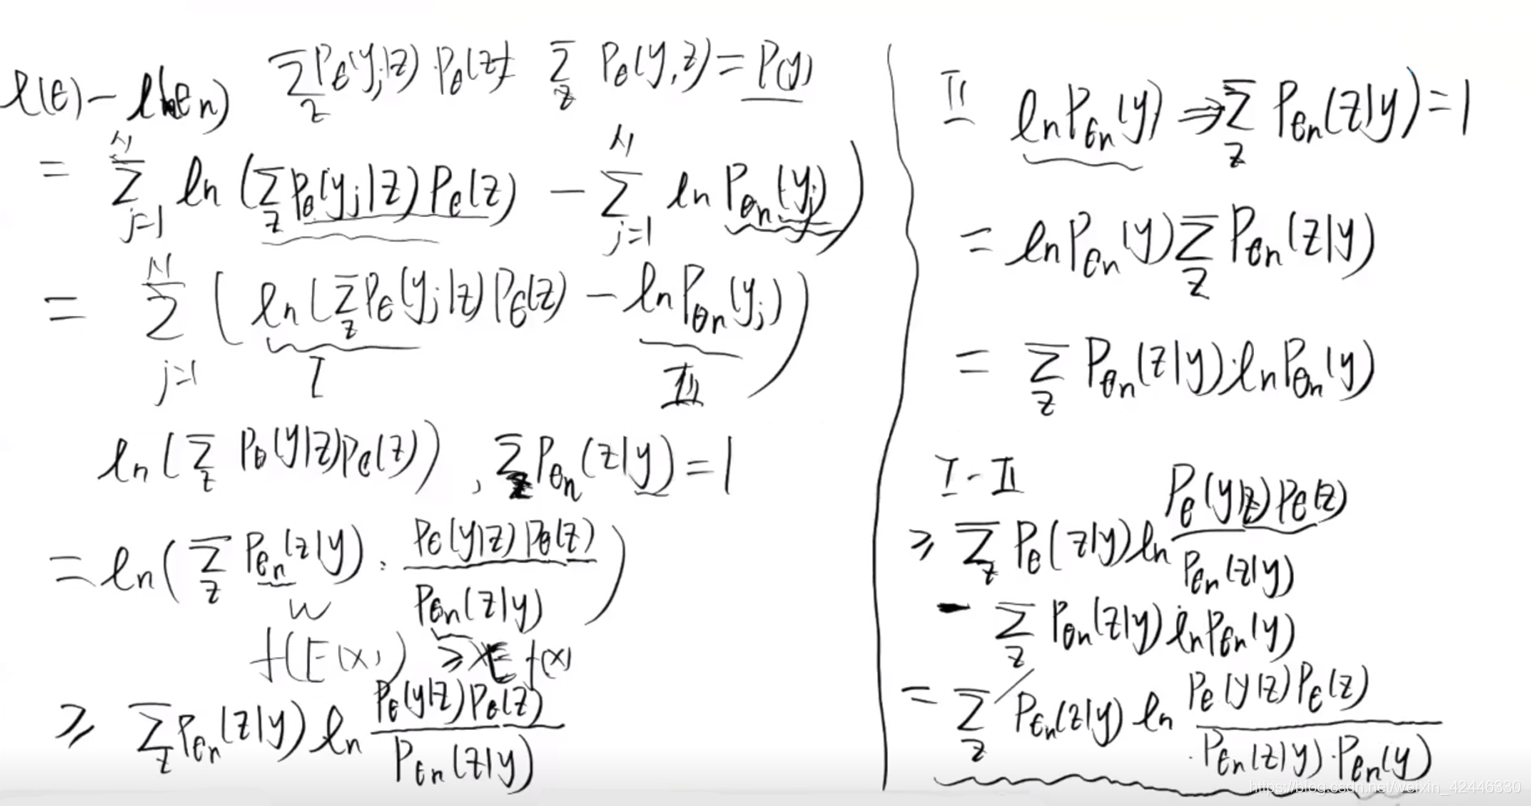 l(θ) - l(θn)
Σ_z Pθ(yj|z)·Pθ(z) = Σ_z Pθ(y,z) = P(y)
= Σ_{j=1}^{N} ln (Σ_z Pθ(yj|z) Pθ(z) - Σ_{j=1}^{N} ln Pθn(yj))
= Σ_{j=1}^{N} ( ln (Σ_z Pθ(yj|z) Pθ(z) - ln Pθn(yj))
I II
ln (Σ_z Pθ(y|z) Pθ(z)) , Σ_z Pθn(z|y) = 1
= ln (Σ_z Pθn(z|y) · Pθ(y|z) Pθ(z) / Pθn(z|y) )
w
f(E(x)) ≥ E f(x)
≥ Σ_z Pθn(z|y) ln Pθ(y|z) Pθ(z) / Pθn(z|y)
II ln Pθn(y) ⇒ Σ_z Pθn(z|y) = 1
= ln Pθn(y) Σ_z Pθn(z|y)
= Σ_z Pθn(z|y)·ln Pθn(y)
I - II
≥ Σ_z Pθ(z|y) ln Pθ(y|z) Pθ(z) / Pθn(z|y)
- Σ_z Pθn(z|y) ln Pθn(y)
= Σ_z Pθn(z|y) ln Pθ(y|z) Pθ(z) / Pθn(z|y)·Pθn(y)
https://blog.csdn.net/weixin_42446330